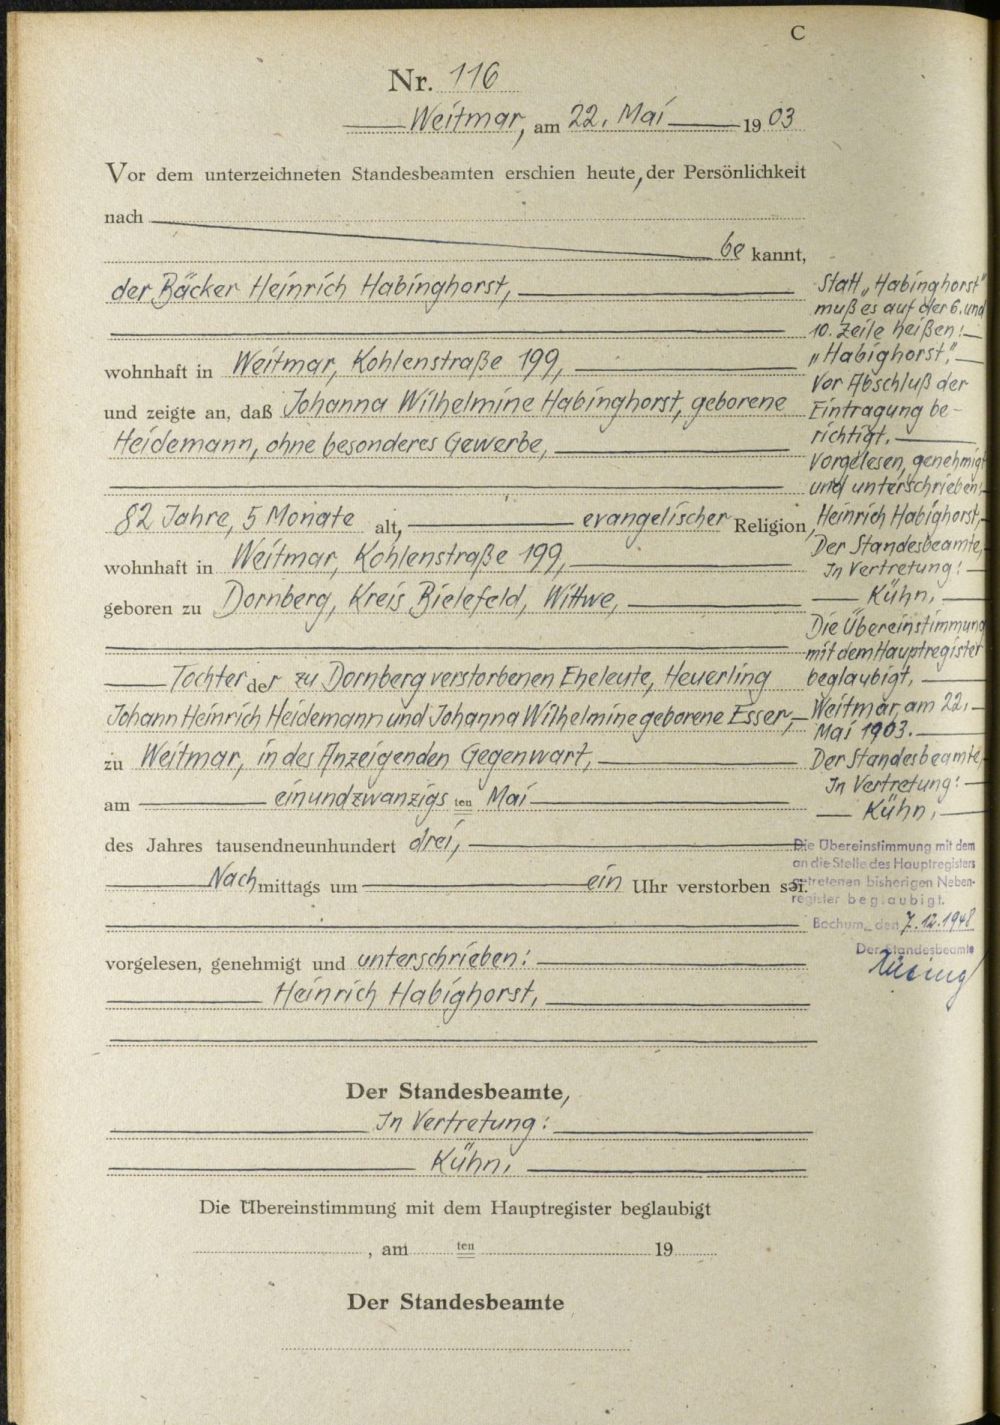 C
Nr. 116
Weitmar, am 22. Mai 1903
Vor dem unterzeichneten Standesbeamten erschien heute, der Persönlichkeit
nach
be kannt,
der Bäcker Heinrich Habinghorst,
wohnhaft in Weitmar, Kohlenstraße 199,
und zeigte an, daß Johanna Wilhelmine Habinghorst, geborene
Heidemann, ohne besonderes Gewerbe,
82 Jahre, 5 Monate alt, evangelischer Religion,
wohnhaft in Weitmar, Kohlenstraße 199,
geboren zu Dornberg, Kreis Bielefeld, Wittwe,
Tochter der zu Dornberg verstorbenen Eheleute, Heuerling
Johann Heinrich Heidemann und Johanna Wilhelmine geborene Esser,
zu Weitmar, in des Anzeigenden Gegenwart,
am einundzwanzigsten Mai
des Jahres tausendneunhundert drei,
Nachmittags um ein Uhr verstorben sei.
vorgelesen, genehmigt und unterschrieben:
Heinrich Habighorst,
Der Standesbeamte,
In Vertretung:
Kühn,
Die Übereinstimmung mit dem Hauptregister beglaubigt
, am ten 19
Der Standesbeamte
Statt „Habinghorst"
muß es auf der 6. und
10. Zeile heißen:
„Habighorst",
Vor Abschluß der
Eintragung be-
richtigt,
Vorgelesen, genehmigt
und unterschrieben,
Heinrich Habighorst,
Der Standesbeamte,
In Vertretung:
Kühn,
Die Übereinstimmung
mit dem Hauptregister
beglaubigt,
Weitmar, am 22.
Mai 1903.
Der Standesbeamte,
In Vertretung:
Kühn,
Die Übereinstimmung mit dem
an die Stelle des Hauptregisters
getretenen bisherigen Neben-
register beglaubigt.
Bochum, den 7.12.1948
Der Standesbeamte